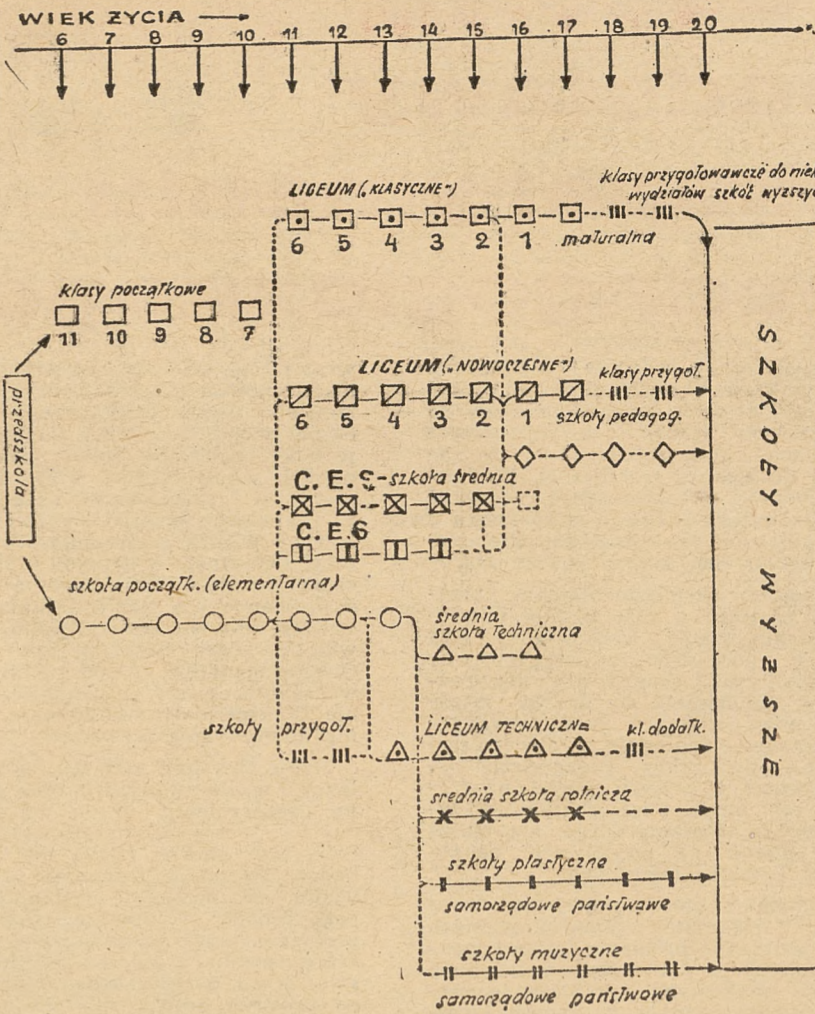 WIEK ŻYCIA
6 7 8 9 10 11 12 13 14 15 16 17 18 19 20
klasy przygotowawcze do
wydziałów szkół
LICEUM („KLASYCZNE”)
6 5 4 3 2 1 maturalna
klasy początkowe
11 10 9 8 7
LICEUM („NOWOCZESNE”)
klasy przygot.
6 5 4 3 2 1 szkoły pedagog.
przedszkola
C. E. S-szkoła średnia
C. E.G
szkoła początk. (elementarna)
średnia
szkoła Techniczna
szkoły przygot.
LICEUM TECHNICZNE
kl. dodatk.
średnia szkoła rolnicza
szkoły plastyczne
samorządowe państwowe
szkoły muzyczne
samorządowe państwowe
SZKOŁY WYŻSZE